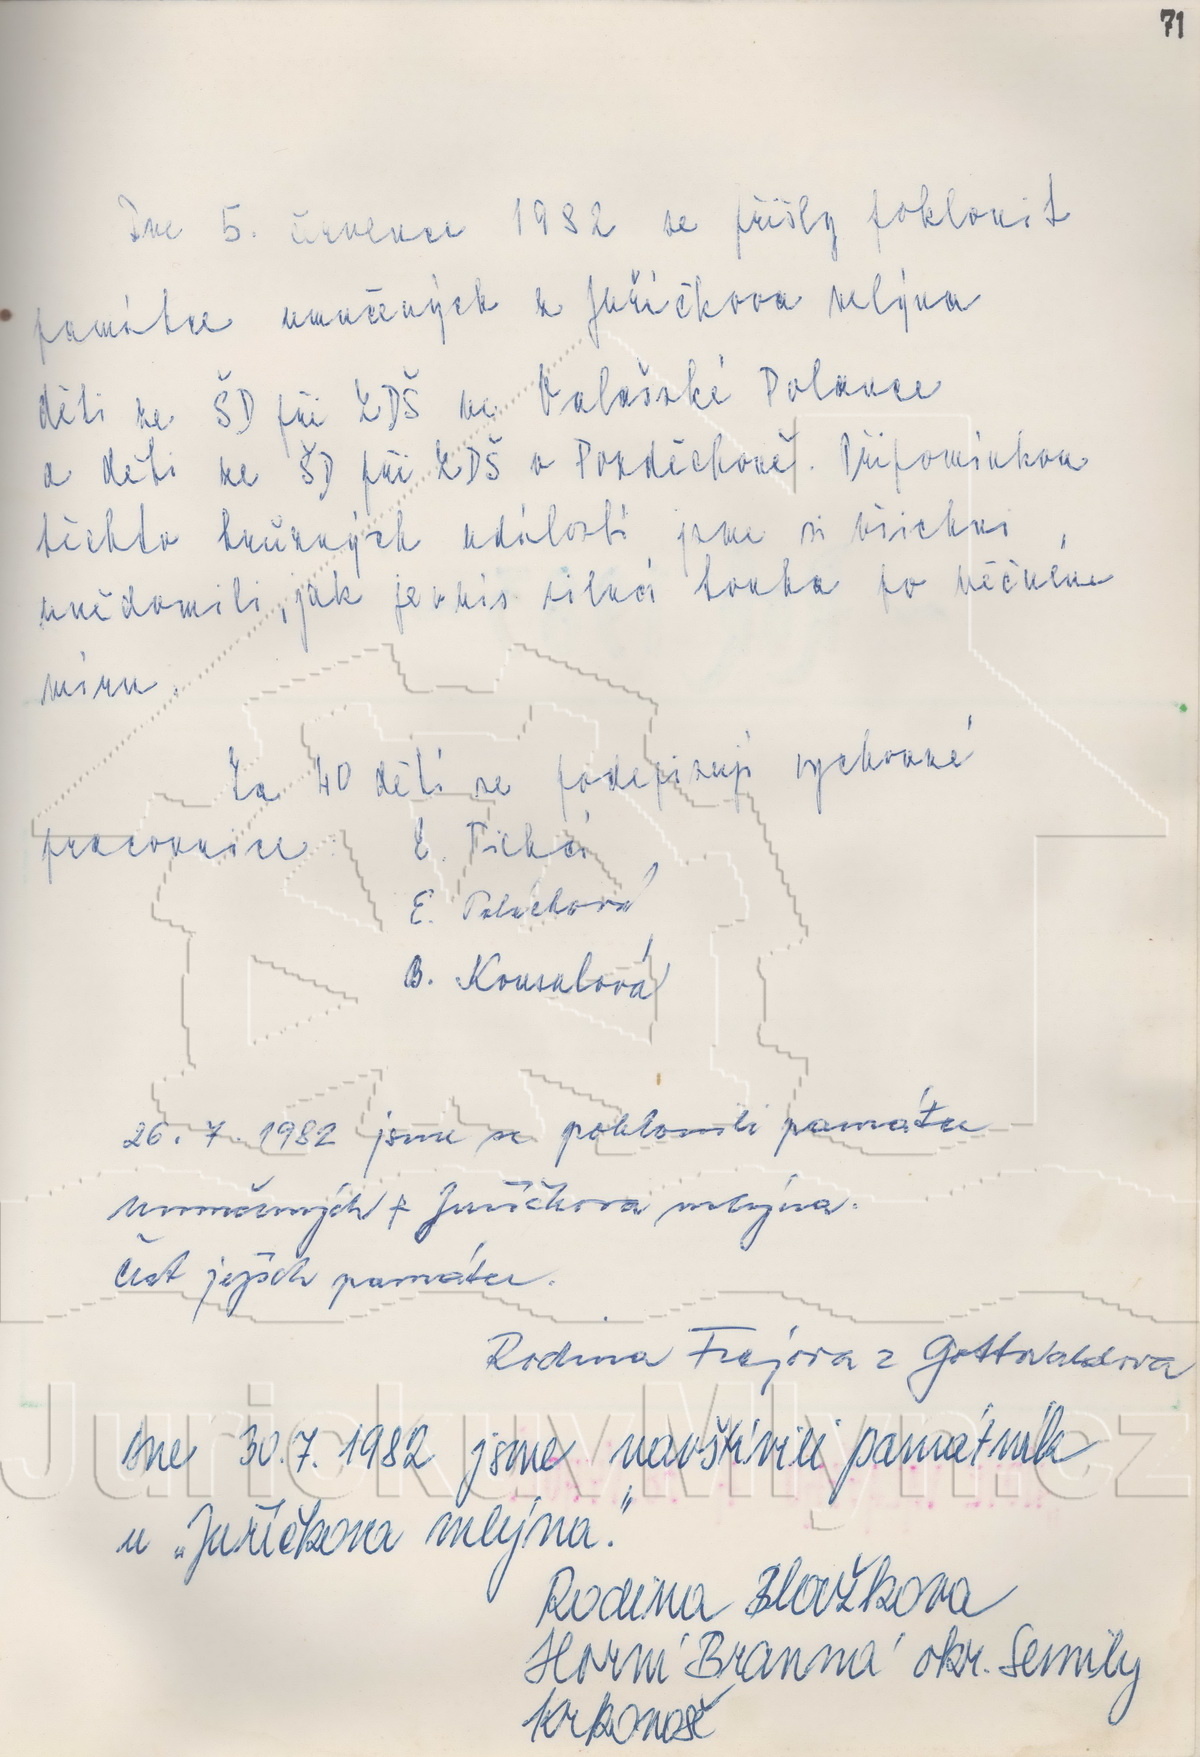 71
Dne 5. července 1982 se přišly poklonit
památce umučených z Juříčkova mlýna
děti ze ŠD při ZDŠ ve Valašské Polance
a děti ze ŠD při ZDŠ v Pozděchově. Připomínkou
těchto hrůzných událostí jsme si všichni
uvědomili, jak je v nás silná touha po věčném
míru.
Za 40 dětí se podepisují vychovné
pracovnice: E. Tichá
E.
B. Kousalová
26. 7. 1982 jsme se poklonili památce
umučených z Juříčkova mlýna.
Čest jejich památce.
Rodina z Gottwaldova
Dne 30.7.1982 jsme navštívili památník
u „Juříčkova mlýna."
Rodina Blažkova
Horní Branná okr. Semily
Krkonoše
JurickuvMlyn.cz